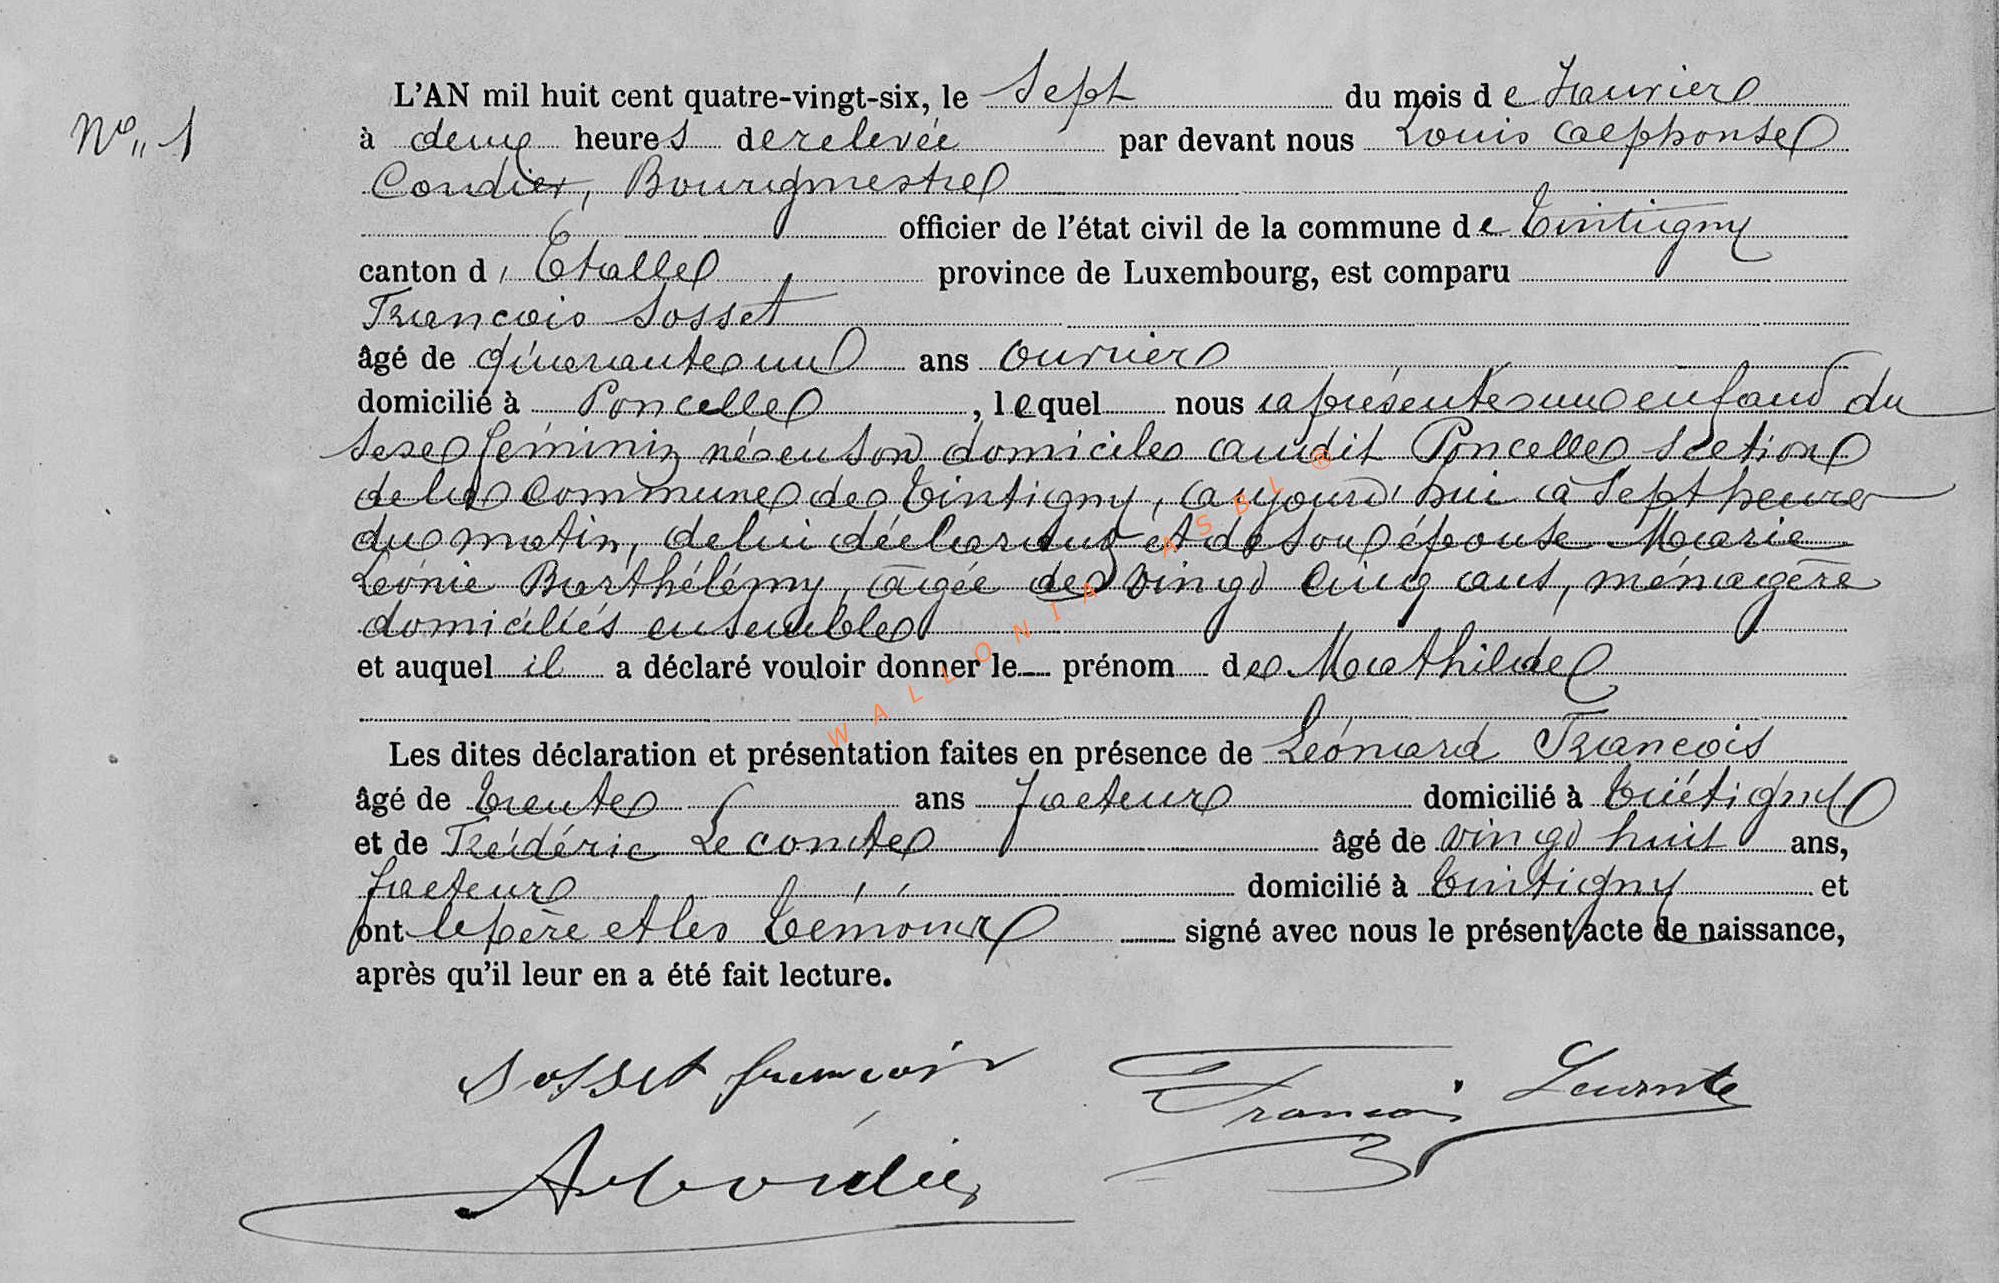 N° 1
L'AN mil huit cent quatre-vingt-six, le Sept du mois de Janvier
à deux heures de relevée par devant nous Louis Alphonse
Condier, Bourgmestre
officier de l'état civil de la commune de Tintigny
canton d'Etalle province de Luxembourg, est comparu
Francois Sosset
âgé de quarante un ans ouvrier
domicilié à Poncelle, lequel nous a présenté un enfand du
sexe féminin né en son domicile audit Poncelle section
de la commune de Tintigny, aujourd'hui à Sept heures
du matin, de lui déclarant et de son épouse Marie
Léonie Barthélémy, âgée de vingt cinq ans, ménagère
domiciliés ensemble
et auquel il a déclaré vouloir donner le prénom de Mathilde
WALLONIA ASBL ®
Les dites déclaration et présentation faites en présence de Léonard Francois
âgé de trente ans facteur domicilié à Tintigny
et de Frédéric Lecomte âgé de vingt huit ans,
facteur domicilié à Tintigny et
ont le père et les témoins signé avec nous le présent acte de naissance,
après qu'il leur en a été fait lecture.
Sosset francois
Francois
Lecomte